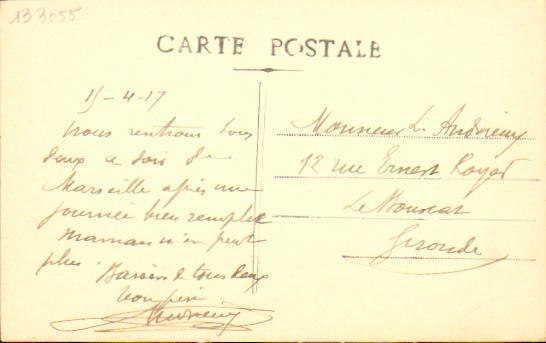 133055
CARTE POSTALE
15-4-17
Nous rentrons tous
deux ce soir de
Marseille après une
journée bien remplie
maman n'en peut
plus. Baisers de tous deux
ton père
Monsieur L.
12 rue Ernest Royer
Le Bouscat
Gironde